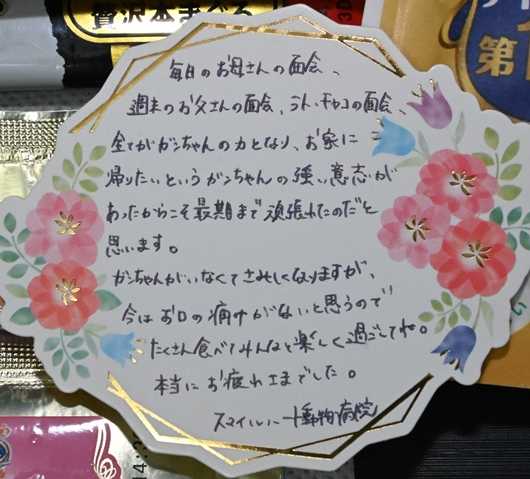 贅沢本まぐろ
第1
毎日のお母さんの面会、
週末のお父さんの面会、ラト・チャコの面会、
全てがガンちゃんの力となり、お家に
帰りたいというガンちゃんの強い意志が
あったからこそ最期まで頑張れたのだと
思います。
ガンちゃんがいなくてさみしくなりますが、
今はお口の痛みがないと思うので
たくさん食べてみんなと楽しく過ごしてね。
本当にお疲れさまでした。
スマイルハート動物病院
14.